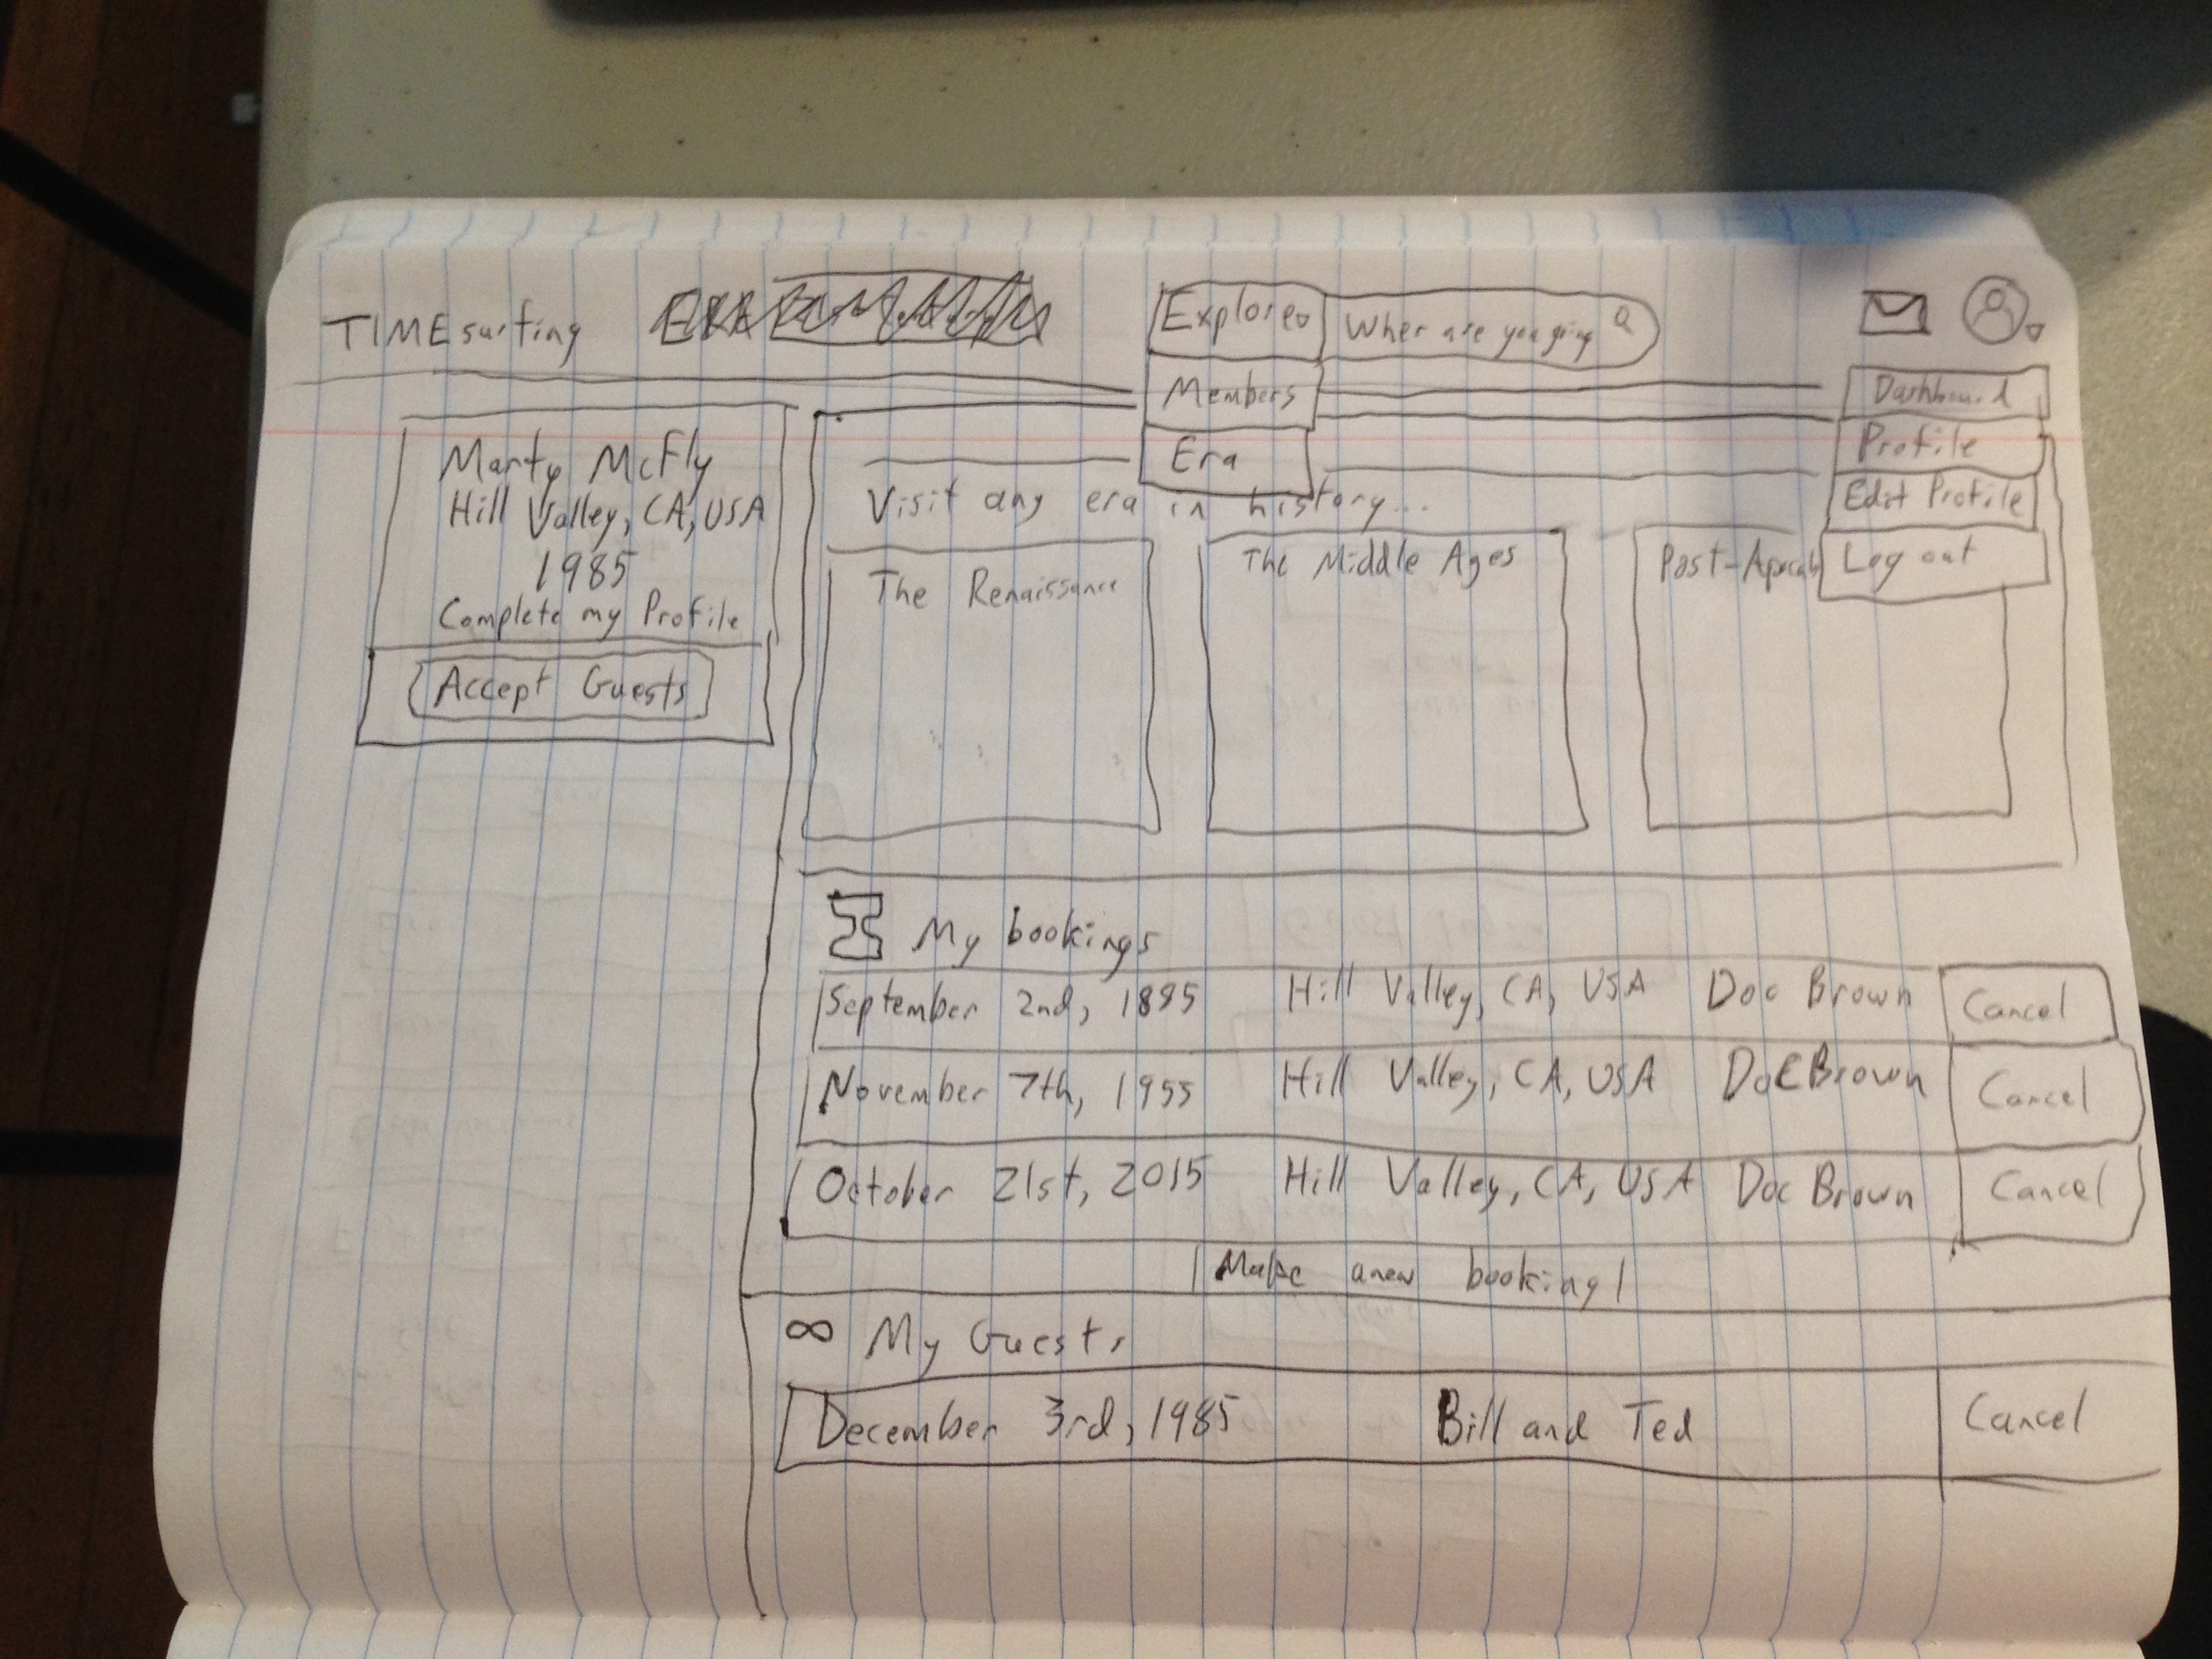 TIMEsurfing
Explorer Wher are you going
Members
Era
Dashboard
Profile
Edit Profile
Log out
Marty McFly
Hill Valley, CA, USA
1985
Complete my Profile
Accept Guests
Visit any era in history...
The Renaissance
The Middle Ages
My bookings
September 2nd, 1895 Hill Valley, CA, USA Doc Brown Cancel
November 7th, 1955 Hill Valley, CA, USA Doc Brown Cancel
October 21st, 2015 Hill Valley, CA, USA Doc Brown Cancel
Make a new booking
∞ My Guests
December 3rd, 1985 Bill and Ted Cancel